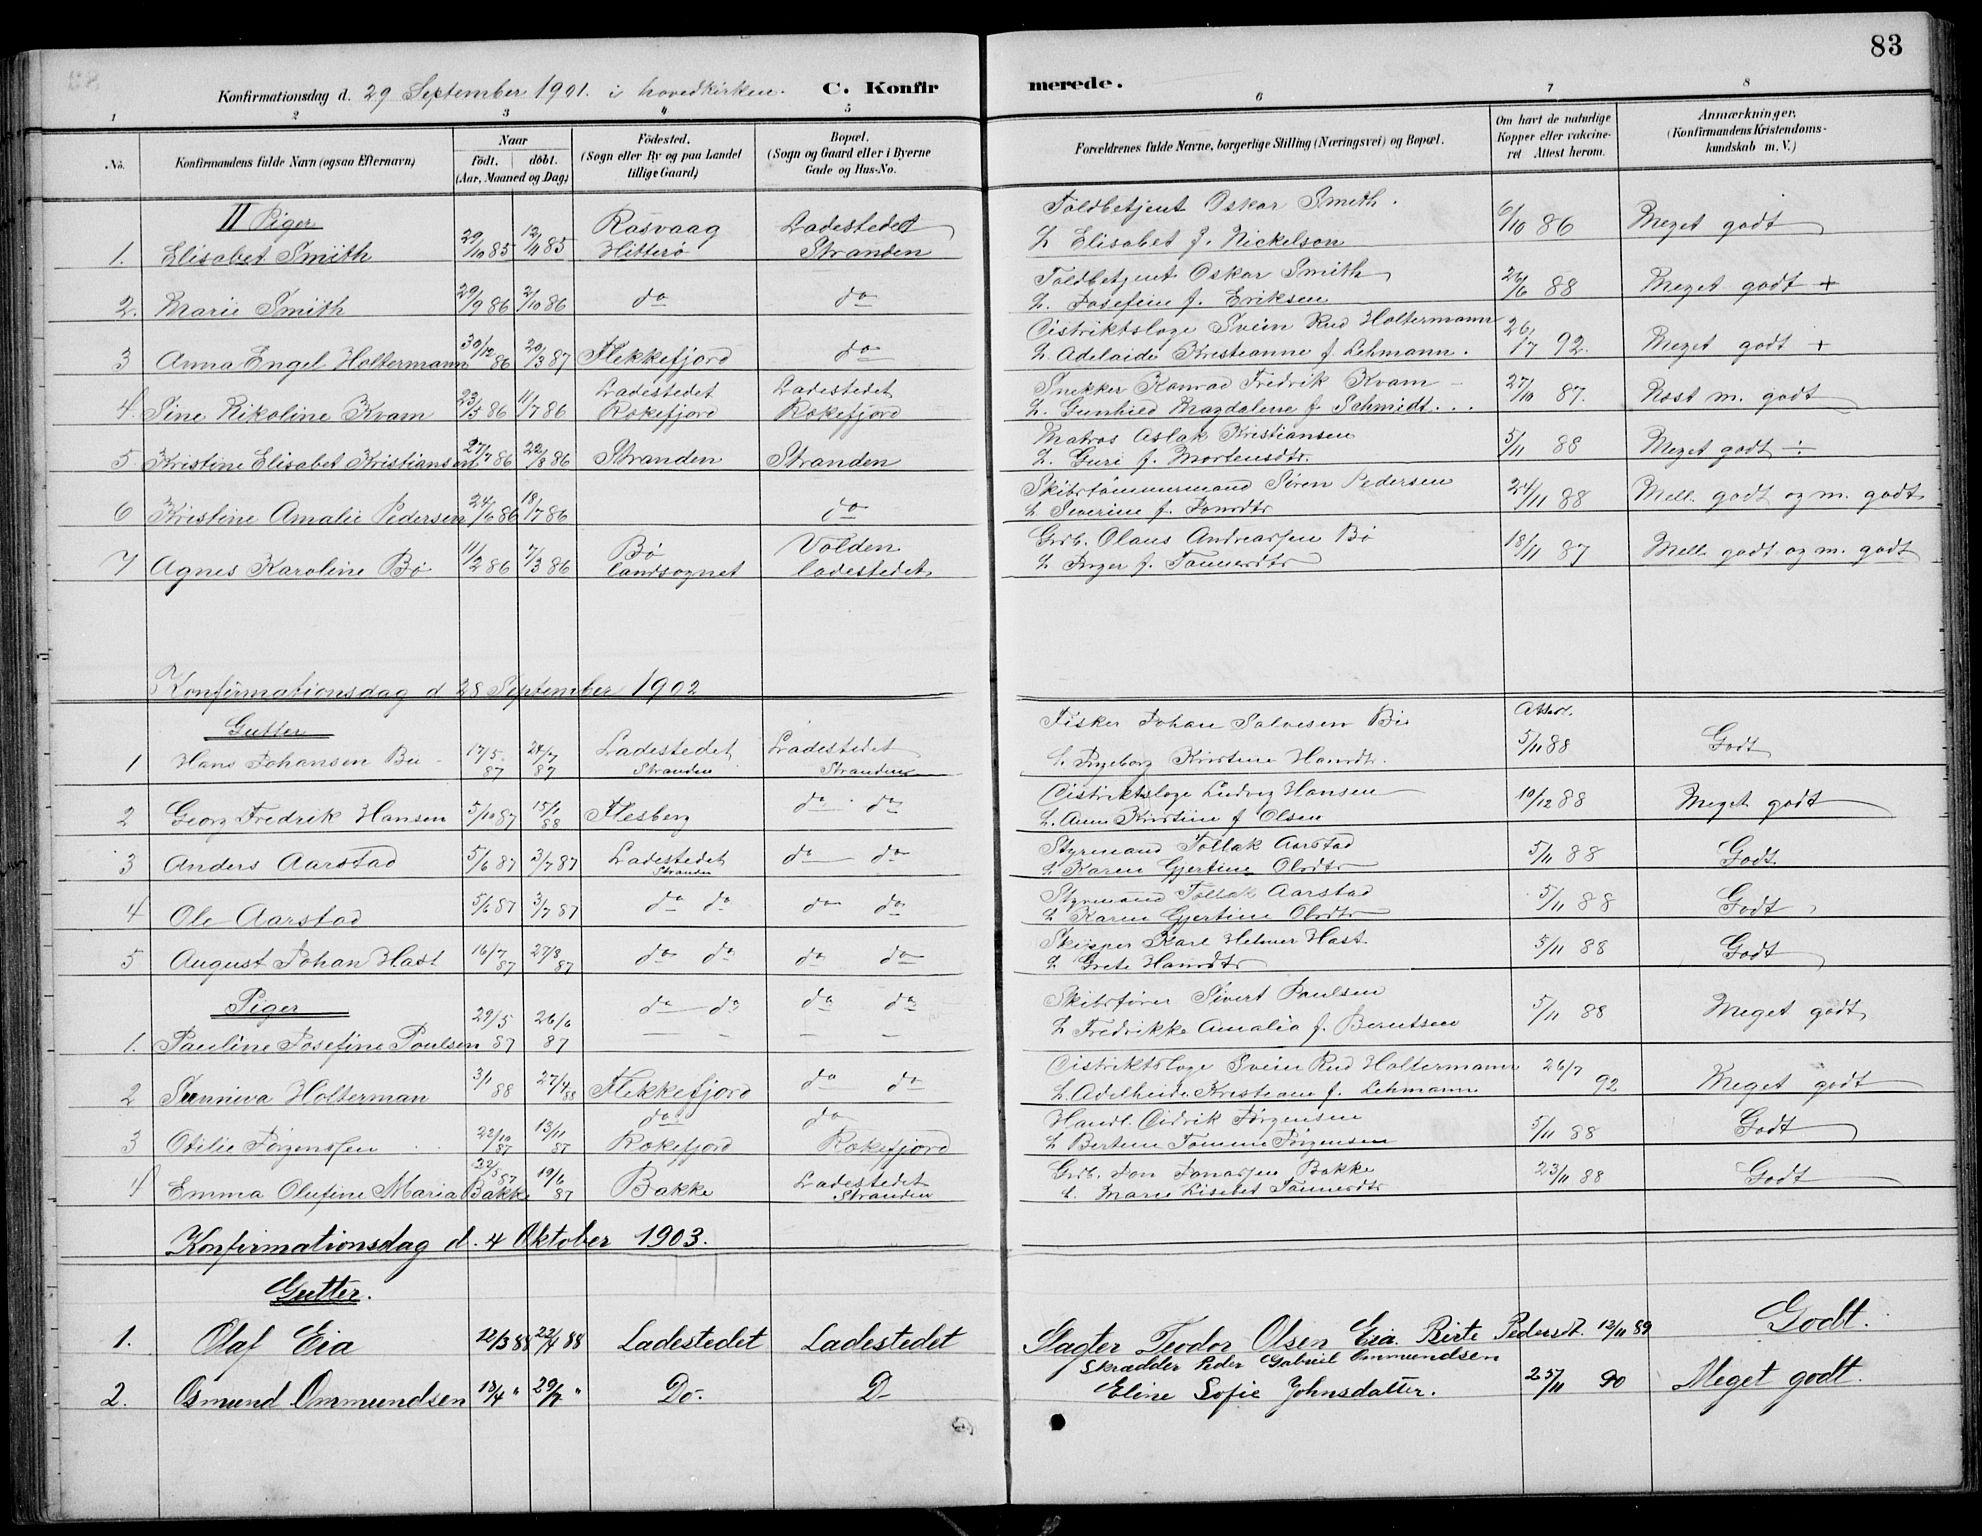 83
Konfirmationsdag d. 29 September 1901. i hovedkirken. C. Konfirmerede.
1 2 3 4 5 6 7 8
No. Konfirmandens fulde Navn (ogsaa Efternavn) Naar født. døbt. (Aar, Maaned og Dag) Fødested. (Sogn eller By og paa Landet tillige Gaard) Bopæl. (Sogn og Gaard eller i Byerne Gade og Hus-No. Forældrenes fulde Navne, borgerlige Stilling (Næringsvei) og Bopæl. Om havt de naturlige Kopper eller vakcineret. Attest herom. Anmærkninger, (Konfirmandens Kristendomskundskab m. V.)
II Piger
1. Elisabet Smith 29/10 85 12/11 85 Rasvaag Hitterø Ladestedet Stranden Toldbetjent Oskar Smith. & Elisabet f. Nickelson 6/10 86 Meget godt
2. Marie Smith 29/9 86 2/10 86 do do Toldbetjent Oskar Smith & Josefine f. Eriksen 26/6 88 Meget godt +
3 Anna Engel Holtermann 30/12 86 20/3 87 Flekkefjord do Distriktslæge Svein Rud Holtermann & Adelaide Kristianne f. Lehmann. 26/7 92. Meget godt +
4. Sine Nikoline Kvam 23/5 86 11/7 86 Ladestedet Rekefjord Ladestedet Rekefjord Snekker Konrad Fredrik Kvam & Gunhild Magdalene f Schmidt 27/10 87. Næst m. godt
5. Kristine Elisabet Kristiansen 27/7 86 22/8 86 Stranden Stranden Matros Aslak Kristiansen & Guri f. Mortensdtr. 5/11 88 Meget godt ÷
6 Kristine Amalie Pedersen 24/6 86 18/7 86 do Skibstømmermand Søren Pedersen & Severine f. Jonsdtr 24/11 88 Mell. godt og m. godt
7 Agnes Karoline Bø 11/2 86 7/3 86 Bø landsognet Volden ladestedet Grdb. Olaus Andreassen Bø & Inger f. Tønnesdtr 18/11 87 Mell. godt og m. godt
Konfirmationsdag d 28 September 1902
Gutter Attest.
1 Hans Johansen Bø 17/5 87 24/7 87 Ladestedet Stranden Ladestedet Stranden Fisker Johan Salvesen Bø & Ingeborg Kristine Hansdtr. 5/11 88 Godt
2 Georg Fredrik Hansen 5/10 87 15/1 88 Flesberg do do Distriktslæge Ludvig Hansen & Anne Kristine f Olsen 10/12 88 Meget godt
3 Anders Aarstad 5/6 87 3/7 87 Ladestedet Stranden do do Styrmand Tollak Aarstad & Karen Gjertine Olsdtr 5/11 88 Godt.
4 Ole Aarstad 5/6 87 3/7 87 do do do do Styrmand Tollak Aarstad & Karen Gjertine Olsdtr 5/11 88 Godt
5 August Johan Hast 16/7 87 27/8 87 do do do do Skipper Karl Helmer Hast. & Grete Hansdtr 5/11 88 Godt
Piger
1. Pauline Josefine Poulsen 29/5 87 26/6 87 do do do do Skibsfører Sivert Paulsen & Fredrikke Amalia f. Berntsen 5/11 88 Meget godt
2 Sunniva Holterman 3/1 88 27/4 88 Flekkefjord do do Distriktslæge Svein Rud Holtermann & Adelheide Kristiane f. Lehmann 26/7 92 Meget godt
3 Otilie Jørgenssen 22/10 87 13/11 87 do Rekefjord do Rekefjord Handl. Didrik Jørgensen & Bertine Tomine Jørgensen 5/11 88 Godt
4 Emma Olufine Maria Bakke 22/5 87 19/6 87 Bakke Ladestedet Stranden Grdb. Jon Jonassen Bakke & Marie Lisebet Tønnesdtr 23/11 88 Godt
Konfirmationsdag d. 4 Oktober 1903.
Gutter.
1. Olaf Eia 12/3 88 22/4 88 Ladestedet Ladestedet Slagter Teodor Olsen Eia. Birte Pedersdt. 12/11 89 Godt.
2. Osmund Ommundsen 18/4 " 29/7 " Do. D- Skrædder Peder Gabriel Ommundsen Eline Sofie Johnsdatter. 25/11 90 Meget godt.